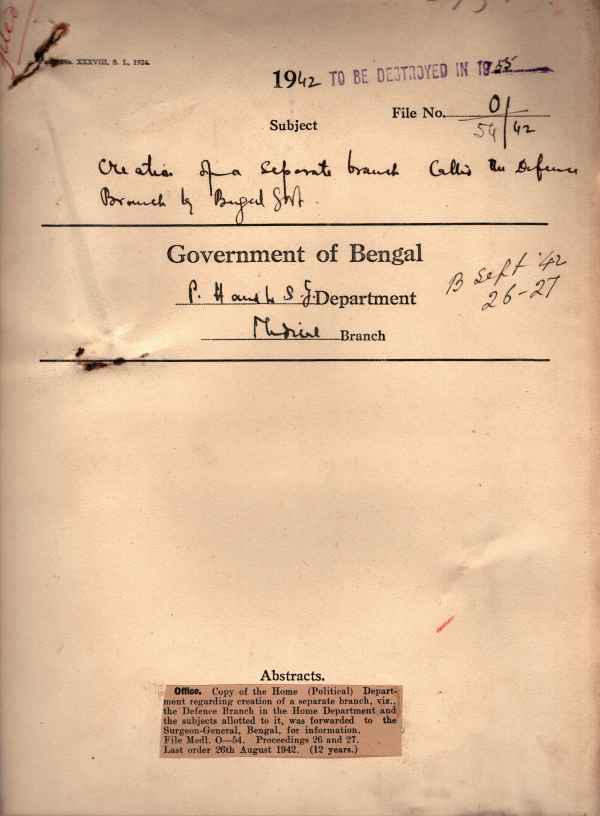 No. XXXVIII, S. I., 1924.
1942 TO BE DESTROYED IN 1955
File No. O/54/42
Subject
Creation of a separate branch Called the Defence
Branch by Bengal Govt.
Government of Bengal
P. H and L. S. G. Department
B Sept '42
26-27
Medical Branch
Abstracts.
Office. Copy of the Home (Political) Depart-
ment regarding creation of a separate branch, viz.,
the Defence Branch in the Home Department and
the subjects allotted to it, was forwarded to the
Surgeon-General, Bengal, for information.
File Medl. O—54. Proceedings 26 and 27.
Last order 26th August 1942. (12 years.)